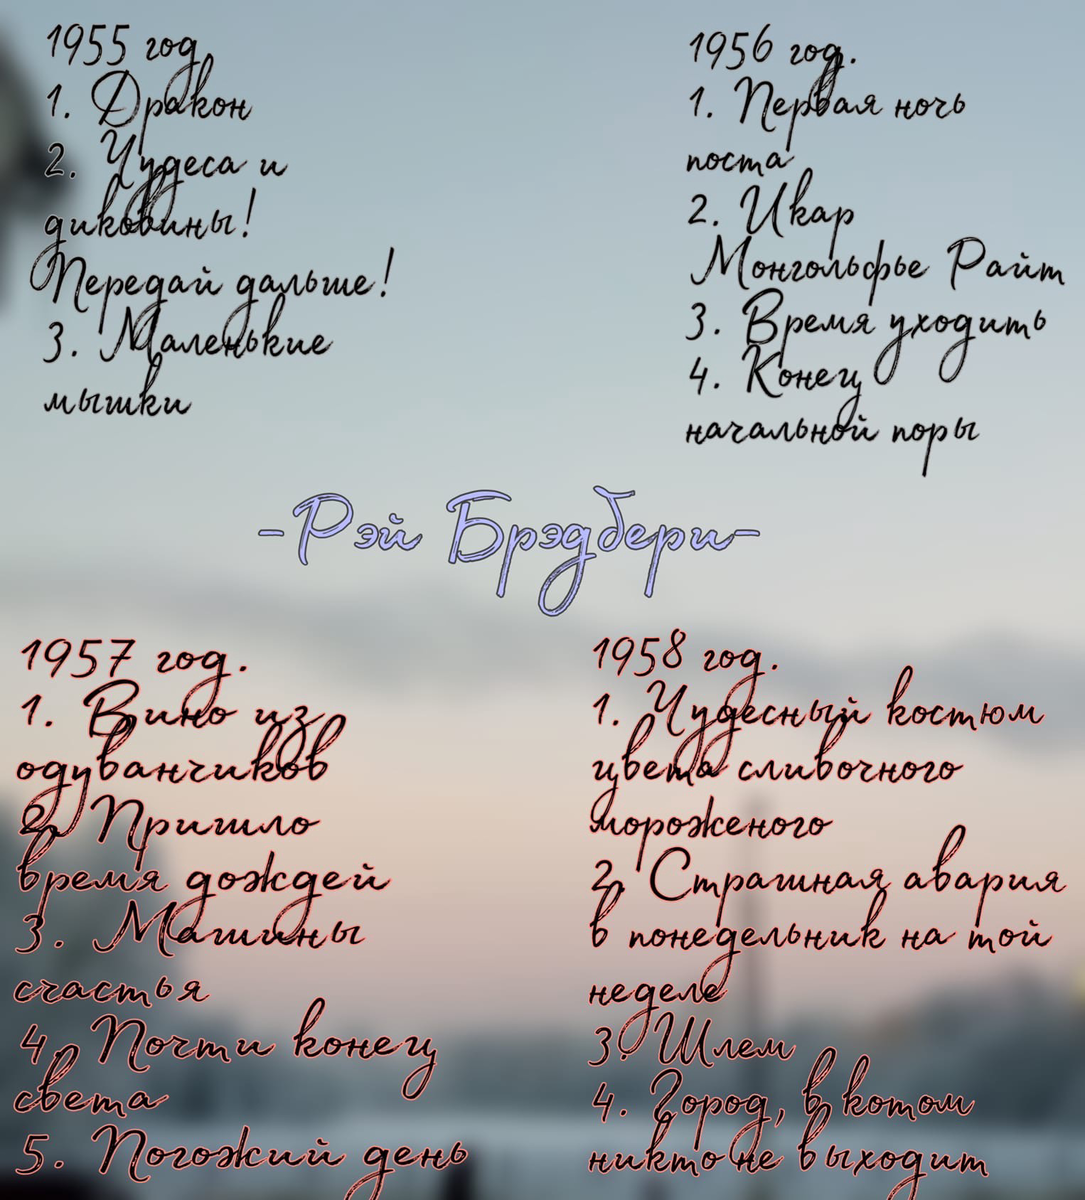 1955 год
1. Дракон
2. Чудеса и
диковины!
Передай дальше!
3. Маленькие
мышки
1956 год.
1. Первая ночь
поста
2. Икар
Монгольфье Райт
3. Время уходить
4. Конец
начальной поры
-Рэй Брэдбери-
1957 год.
1. Вино из
одуванчиков
2. Пришло
время дождей
3. Машины
счастья
4. Почти конец
света
5. Погожий день
1958 год.
1. Чудесный костюм
цвета сливочного
мороженого
2. Страшная авария
в понедельник на той
неделе
3. Шлем
4. Город, в котом
никто не выходит